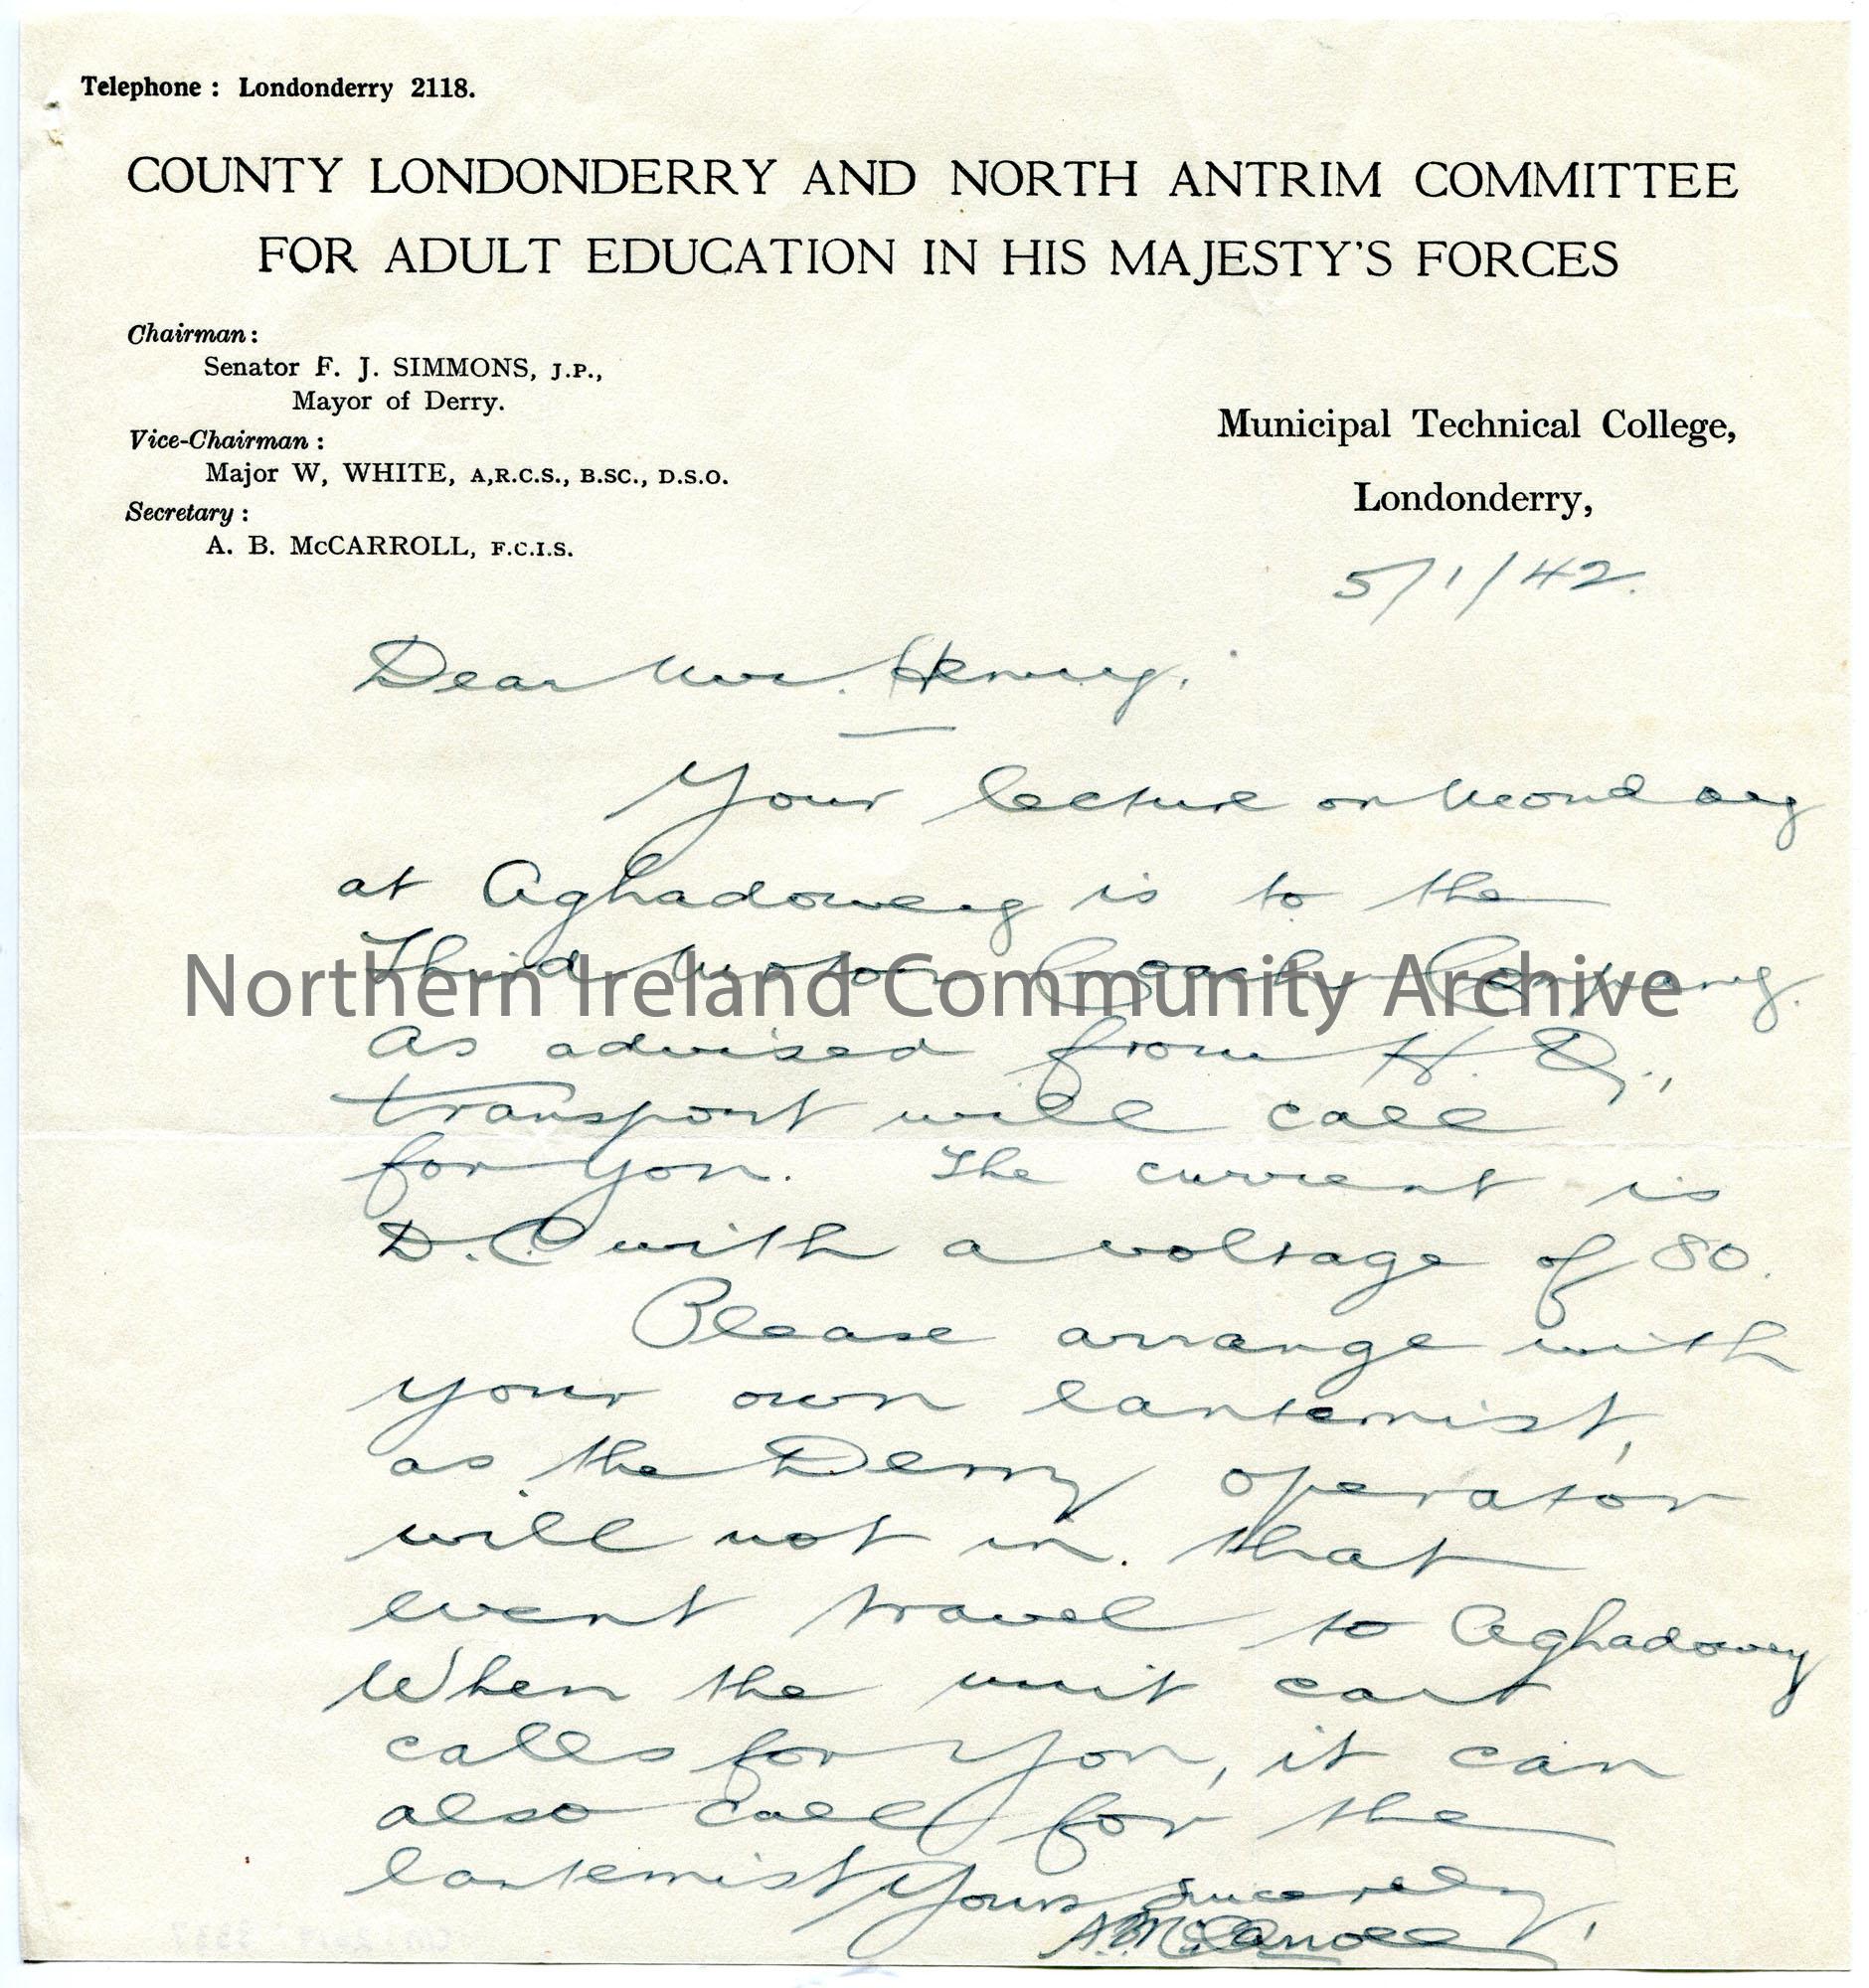 Telephone : Londonderry 2118.
COUNTY LONDONDERRY AND NORTH ANTRIM COMMITTEE
FOR ADULT EDUCATION IN HIS MAJESTY'S FORCES
Chairman :
Senator F. J. SIMMONS, J.P.,
Mayor of Derry.
Vice-Chairman :
Major W, WHITE, A,R.C.S., B.SC., D.S.O.
Secretary :
A. B. McCARROLL, F.C.I.S.
Municipal Technical College,
Londonderry,
5/1/42.
Dear Mr. Henry.
Your lecture on Monday
at Aghadowey is to the
Third Motor Coach Company.
As advised from H. Q.,
transport will call
for you. The current is
D.C with a voltage of 80.
Please arrange with
your own lanternist,
as the Derry operator
will not in. that
event travel to Aghadowey
When the unit cart
calls for you, it can
also call for the
lanternist Yours sincerely,
A.B.McCarroll
Northern Ireland Community Archive